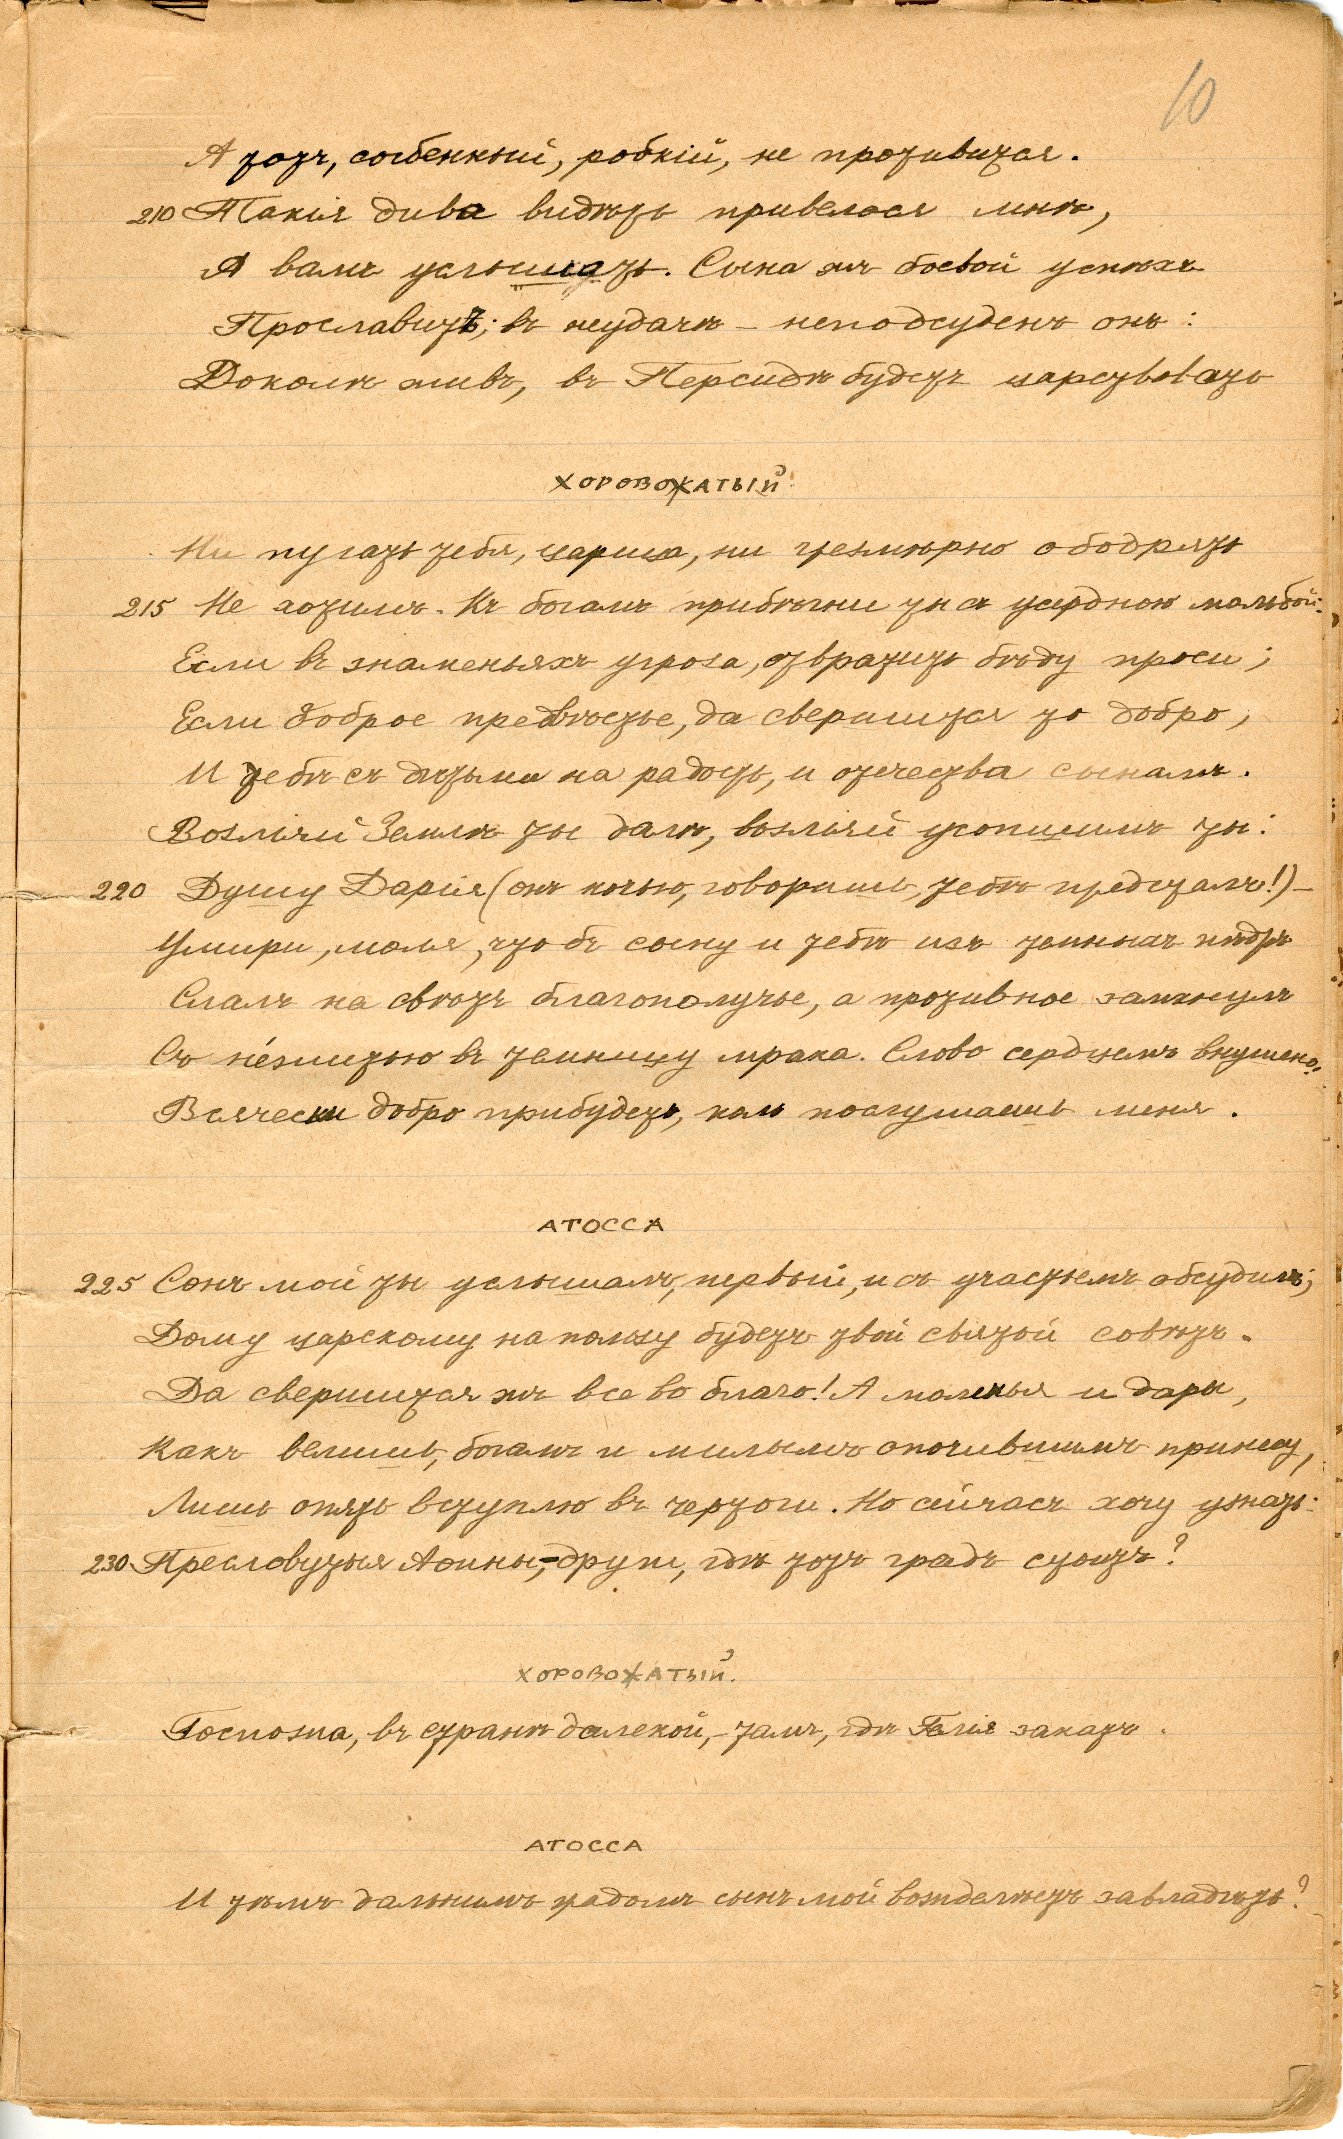 10
А тотъ, согбенный, робкій, не противится.
210 Такія дива видѣть привелося мнѣ,
А вамъ услышать. Сына жъ боевой успѣхъ
Прославитъ; въ неудачѣ – неподсуденъ онъ:
Доколѣ живъ, въ Персидѣ будетъ царствовать
ХОРОВОЖАТЫЙ
Ни пугать тебя, царица, ни чрезмѣрно ободрять
215 Не хотимъ. Къ богамъ прибѣгни ты съ усердною мольбой:
Если въ знаменьяхъ угроза, отвратить бѣду проси;
Если доброе предвѣстье, да свершится то добро,
И тебѣ съ дѣтьми на радость, и отечества сынамъ.
Возліяй Землѣ ты далѣ, возліяй усопшимъ ты:
220 Душу Дарія (онъ ночью, говоришь, тебѣ предсталъ!) –
Умири, моля, чтобъ сыну и тебѣ изъ темныхъ нѣдръ
Слалъ на свѣтъ благополучье, а противное замкнулъ
Съ не́житью въ темницу мрака. Слово сердцемъ внушено:
Всячески добро прибудетъ, коль послушаешь меня.
АТОССА
225 Сонъ мой ты услышалъ, первый, и съ участьемъ обсудилъ;
Дому царскому на пользу будетъ твой святой совѣтъ.
Да свершится жъ все во благо! А моленья и дары,
Какъ велишь, богамъ и милымъ опочившимъ принесу,
Лишь опять вступлю въ чертоги. Но сейчасъ хочу узнать:
230 Пресловутыя Аѳины, – други, гдѣ тотъ градъ стоитъ?
ХОРОВОЖАТЫЙ.
Госпожа, въ странѣ далекой, – тамъ, гдѣ Гелія закатъ.
АТОССА
И тѣмъ дальнимъ градомъ сынъ мой вожделѣетъ завладѣть?